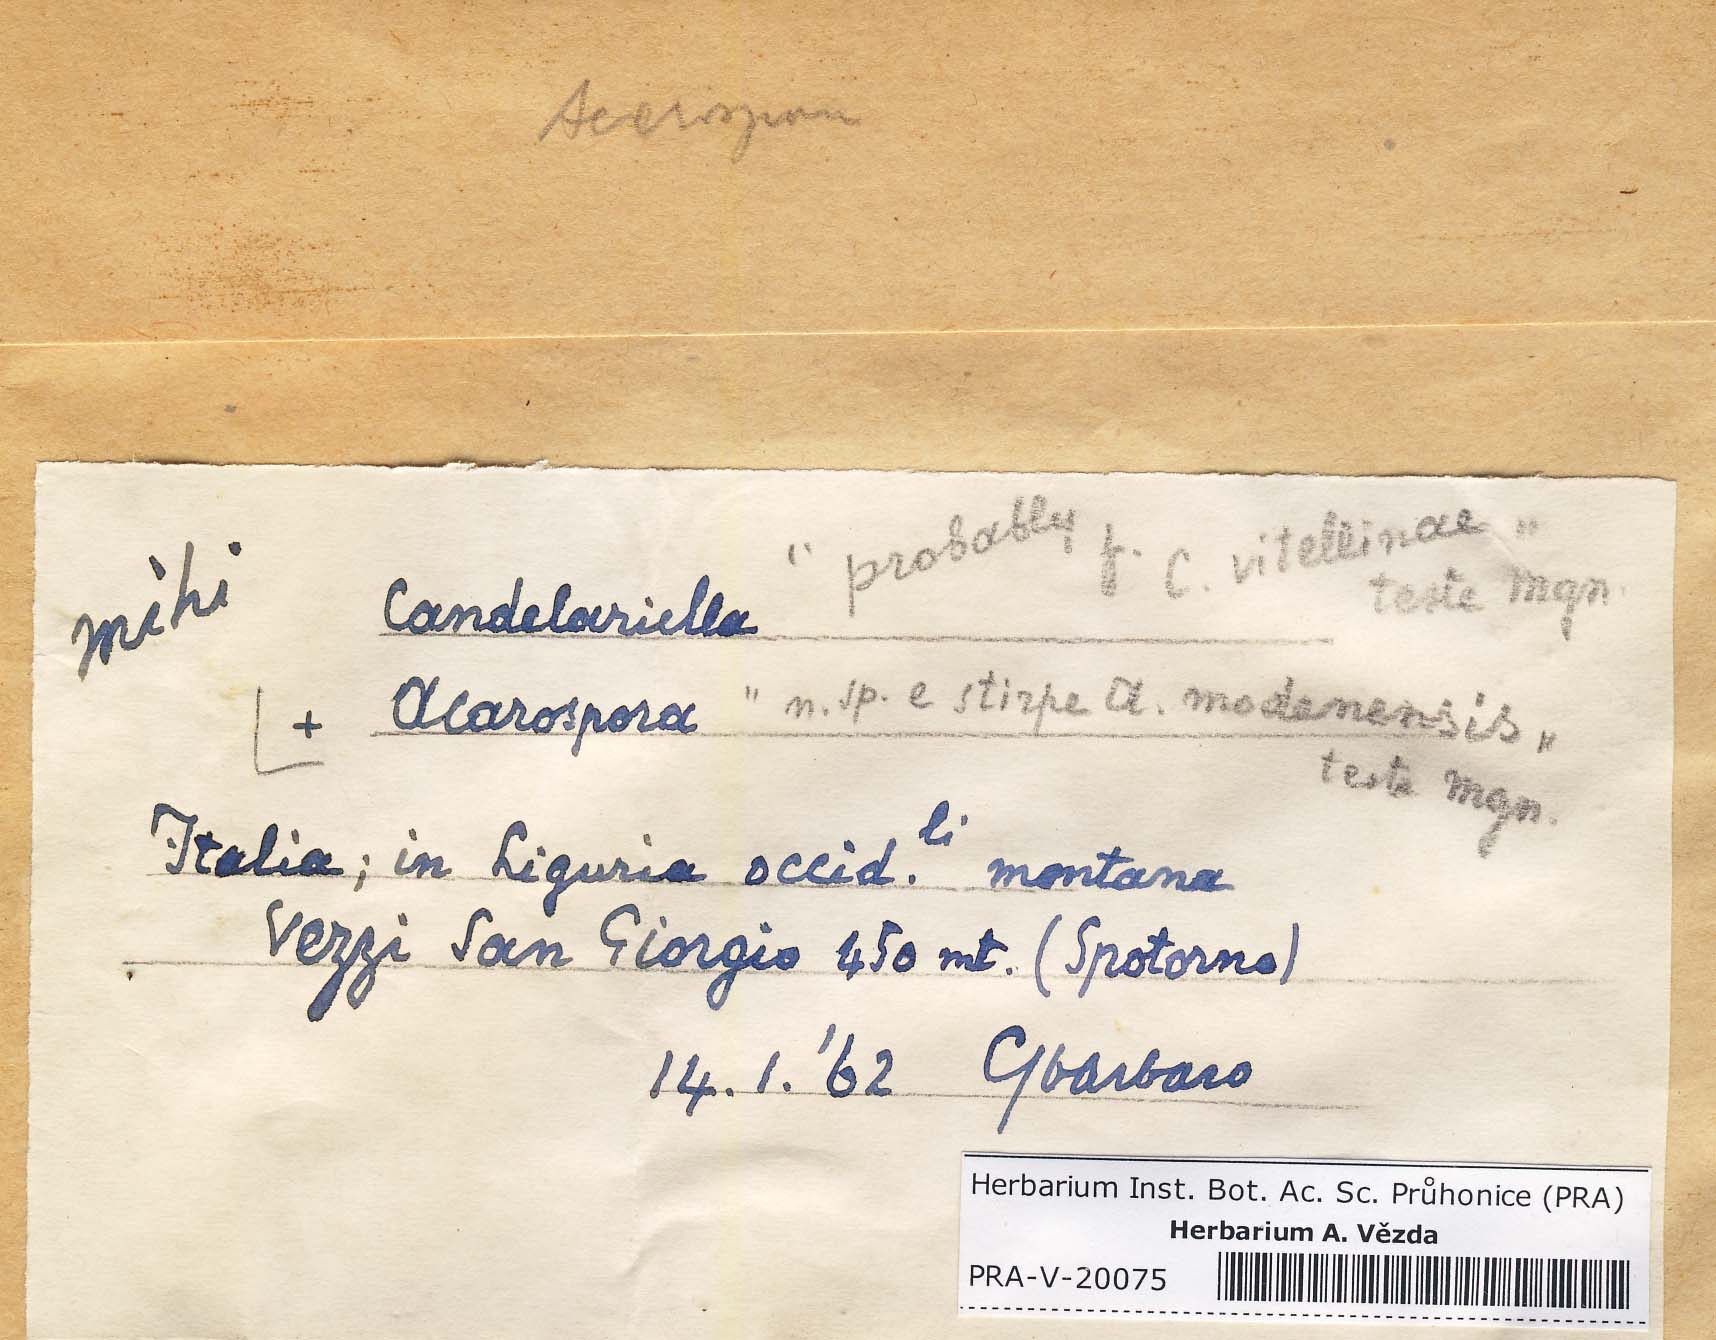 Acarospora
mihi
Candelariella " probably f. C. vitellinae "
teste Mgn.
+ Acarospora " n. sp. e stirpe A. modenensis "
teste Mgn.
Italia; in Liguria occid.li montana
Vezzi San Giorgio 450 mt. (Spotorno)
14. 1. '62 CBarbaro
Herbarium Inst. Bot. Ac. Sc. Průhonice (PRA)
Herbarium A. Vězda
PRA-V-20075